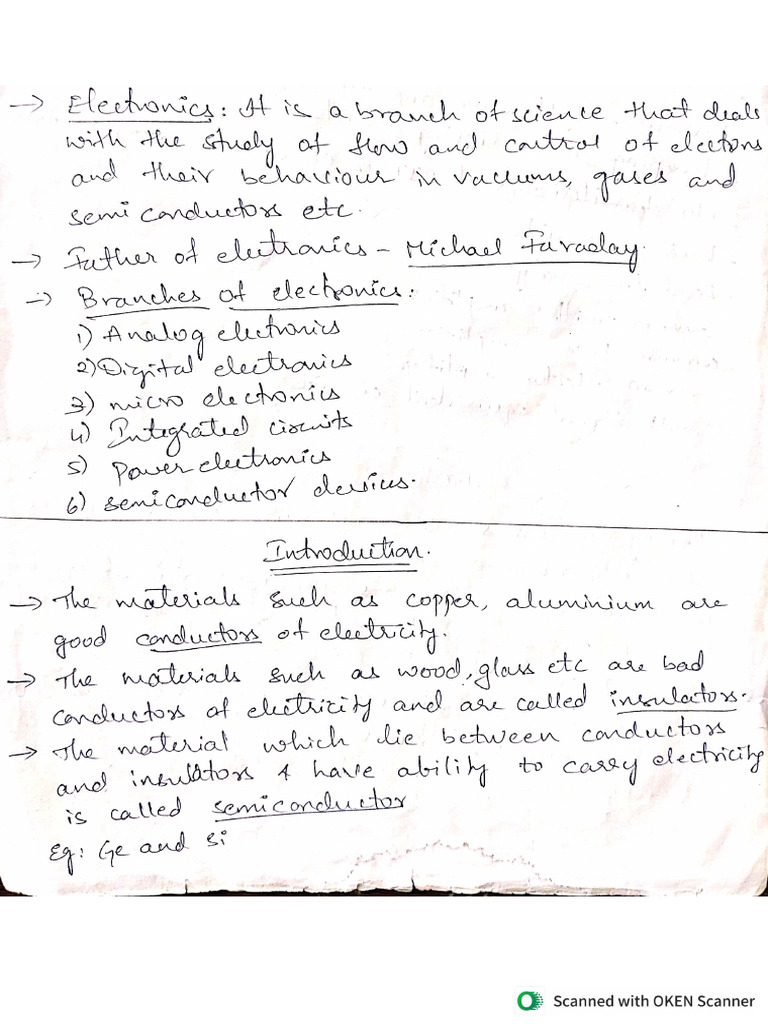 → Electronics: It is a branch of science that deals
with the study of flow and control of electons
and their behaviour in vaccums, gases and
semi conductors etc.
→ Father of electronics - Michael Faraday.
→ Branches of electronics:
1) Analog eletronics
2) Digital electronics
3) micro electronics
4) Integrated circuits
5) Power electronics
6) semiconductor devices.
Introduction.
→ The materials such as copper, aluminium are
good conductors of electricity.
→ The materials such as wood, glass etc are bad
conductors of electricity and are called insulators.
→ The material which lie between conductors
and insulators & have ability to carry electricity
is called semiconductor
Eg: Ge and Si
Scanned with OKEN Scanner